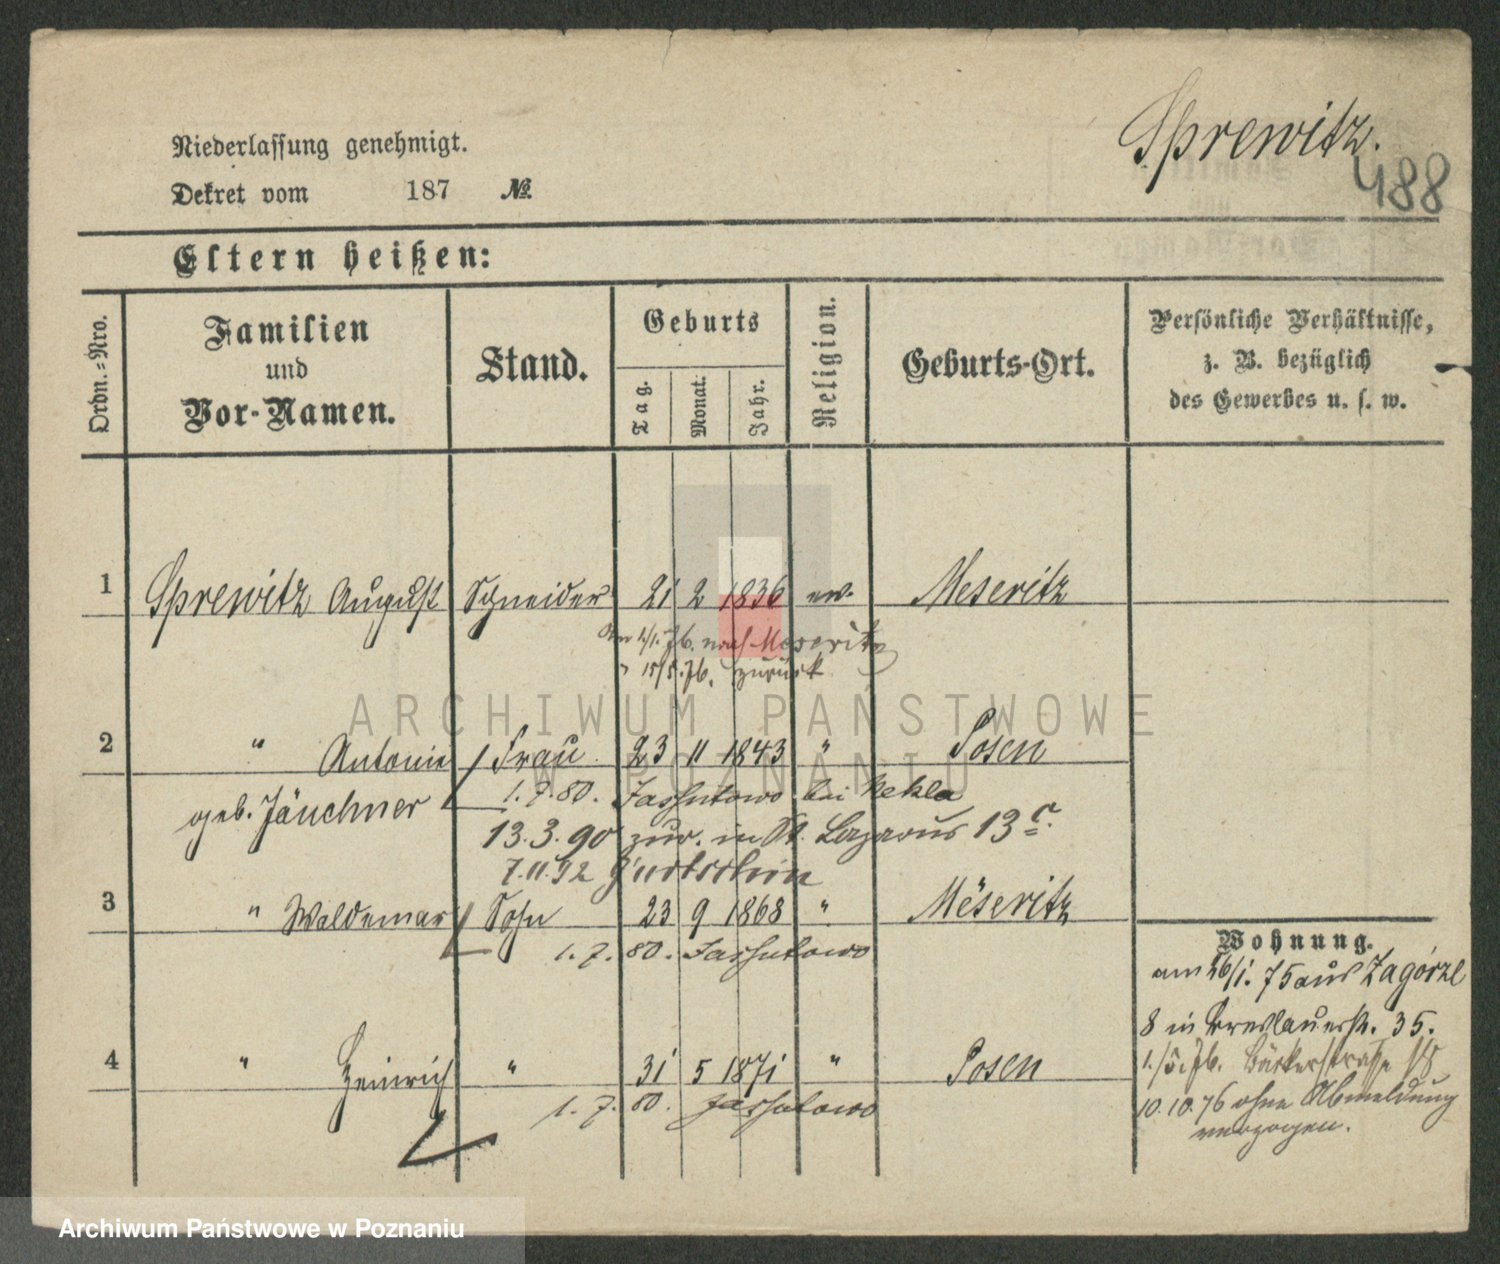 Sprewitz.
488
Niederlassung genehmigt.
Dekret vom 187 №
Eltern heißen:
Ordn.=Nro.
Familien
und
Vor-Namen.
Stand.
Geburts
Tag.
Monat.
Jahr.
Religion.
Geburts-Ort.
Persönliche Verhältnisse,
z. B. bezüglich
des Gewerbes u. s. w.
1 Sprewitz August Schneider 21 2 1836 ev. Meseritz
1/1. 76. nach Meseritz
" 15/5. 76. zurück
2 " Antonie Frau 23 11 1843 " Posen
geb. Jäuchner
1. 7. 80. Jassutowo bei Nekla
13. 3. 90 zur. in St. Lazarus 13c.
7. 11. 92 Gurtschin
3 " Waldemar Sohn 23 9 1868 " Meseritz
1. 7. 80. Jassutowo
4 " Heinrich " 31 5 1871 " Posen
1. 7. 80. Jassutowo
Wohnung.
am 26/1. 75 aus Zagórze
8 in Breslauerstr. 35.
1./5. 76. Bäckerstraße
10. 10. 76 ohne Abmeldung
verzogen.
ARCHIWUM PAŃSTWOWE
W POZNANIU
Archiwum Państwowe w Poznaniu